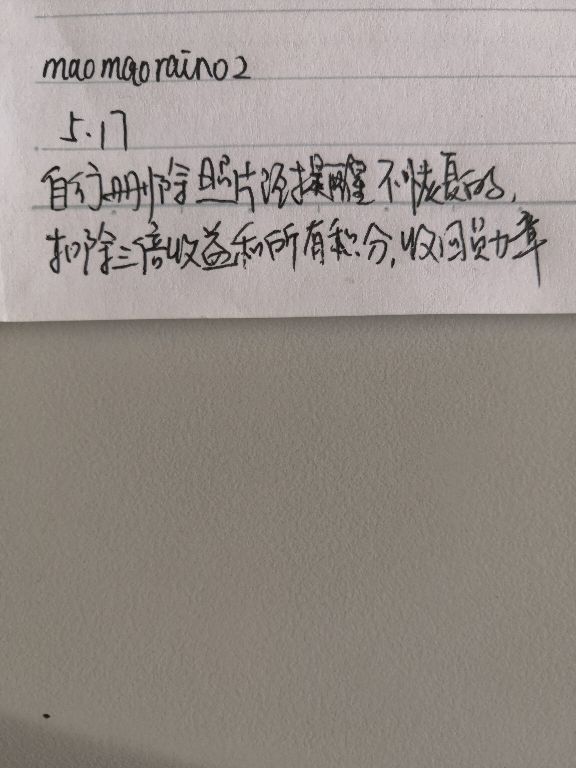 maomaoraino2
5.17
自行删除照片经提醒不恢复的,
扣除三倍收益和所有积分,收回勋章